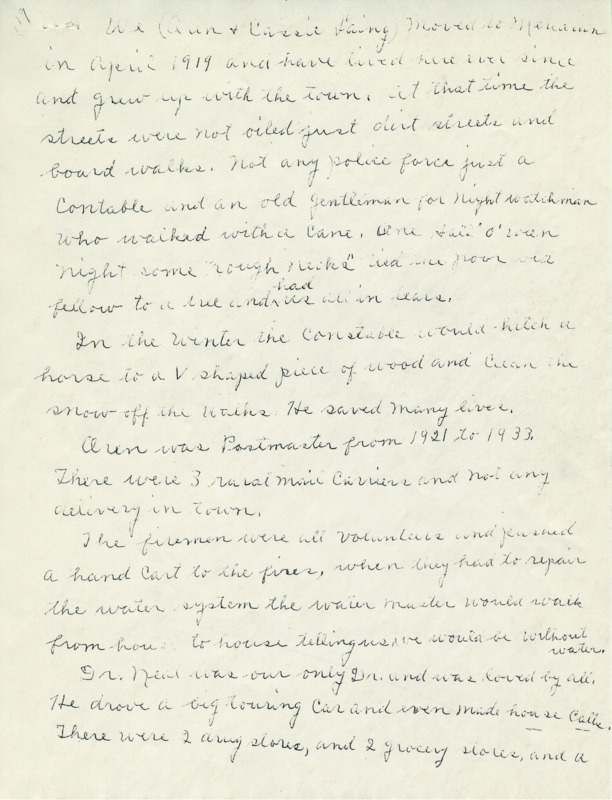 We (Oren & Cassie Laing) moved to
in April 1919 and have lived here ever since
and grew up with the town. At that time the
streets were not oiled just dirt streets and
board walks. Not any police force just a
Contable and an old gentleman for Night watchman
who walked with a Cane. One Hall "O" ween
night some "rough necks" tied the poor old
had
fellow to a tree and us all in tears.
In the Winter the Constable would hitch a
horse to a V shaped piece of wood and Clean the
snow off the walks. He saved many lives.
Oren was Postmaster from 1921 to 1933.
There were 3 rural Mail Carriers and not any
delivery in town.
The firemen were all Volunteers and pushed
a hand Cart to the fires, when they had to repair
the water system the water master would walk
from to house telling us, we would be without
water.
Dr. Neal was our only Dr. and was loved by all.
He drove a big touring Car and even made house Calls.
There were 2 drug stores, and 2 grocery stores, and a